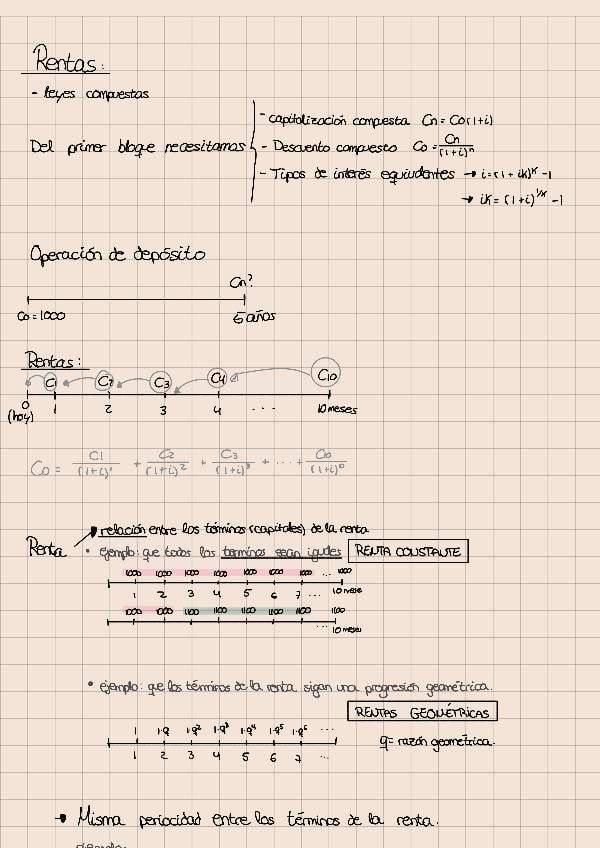 Rentas:
- leyes compuestas
Del primer bloque necesitamos
- capitalización compuesta Cn = Co(1+i)
- Descuento compuesto Co = Cn/(1+i)^n
- Tipos de interés equivalentes → i = (1 + ik)^k - 1
→ ik = (1+i)^1/k - 1
Operación de depósito
Cn?
Co = 1000
5 años
Rentas:
C1 C2 C3 C4 C10
0 1 2 3 4 ... 10 meses
(hoy)
Co = C1/(1+i)^1 + C2/(1+i)^2 + C3/(1+i)^3 + ... + C10/(1+i)^10
relación entre los términos (capitales) de la renta
Renta
• ejemplo: que todos los términos sean iguales RENTA CONSTANTE
1000 1000 1000 1000 1000 1000 1000 ... 1000
1 2 3 4 5 6 7 ... 10 mese
1000 1000 1100 1100 1100 1100 1100 1100
... 10 meses
• ejemplo: que los términos de la renta sigan una progresión geométrica.
RENTAS GEOMÉTRICAS
1 1·q 1·q^2 1·q^3 1·q^4 1·q^5 1·q^6 ...
1 2 3 4 5 6 7 ...
q = razón geométrica.
→ Misma periocidad entre los términos de la renta.
ejemplo: